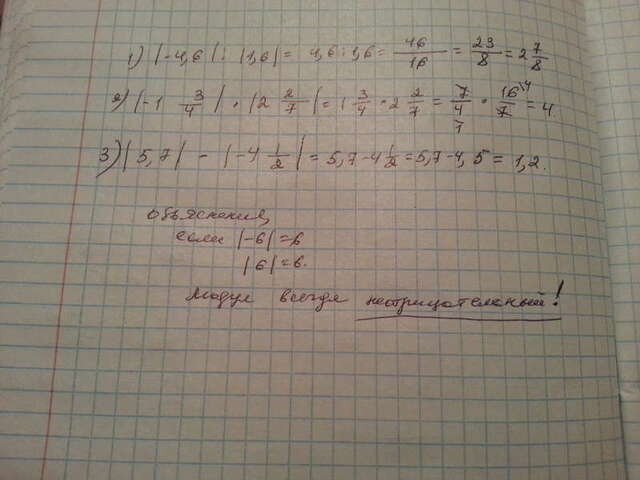 1) |-4,6| : |1,6| = 4,6 : 1,6 = 46/16 = 23/8 = 2 7/8
2) |-1 3/4| · |2 2/7| = 1 3/4 · 2 2/7 = 7/4 · 16/7 = 4.
3) |5,7| - |-4 1/2| = 5,7 - 4 1/2 = 5,7 - 4,5 = 1,2.
если |-6| = 6
|6| = 6.
Модул всегда неотрицательный!